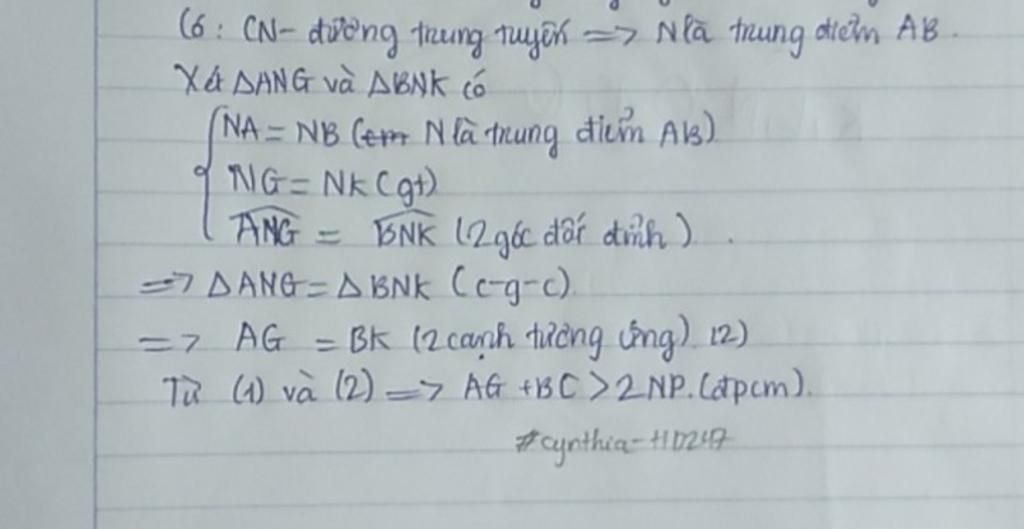 Có: CN- đường trung tuyến => N là trung điểm AB.
Xét ΔANG và ΔBNK có
NA = NB (N là trung điểm AB)
NG = NK (gt)
ANG = BNK (2 góc đối đỉnh).
=> ΔANG = ΔBNK (c-g-c)
=> AG = BK (2 cạnh tương ứng) (2)
Từ (1) và (2) => AG + BC > 2NP. (đpcm).
#cynthia-HD247